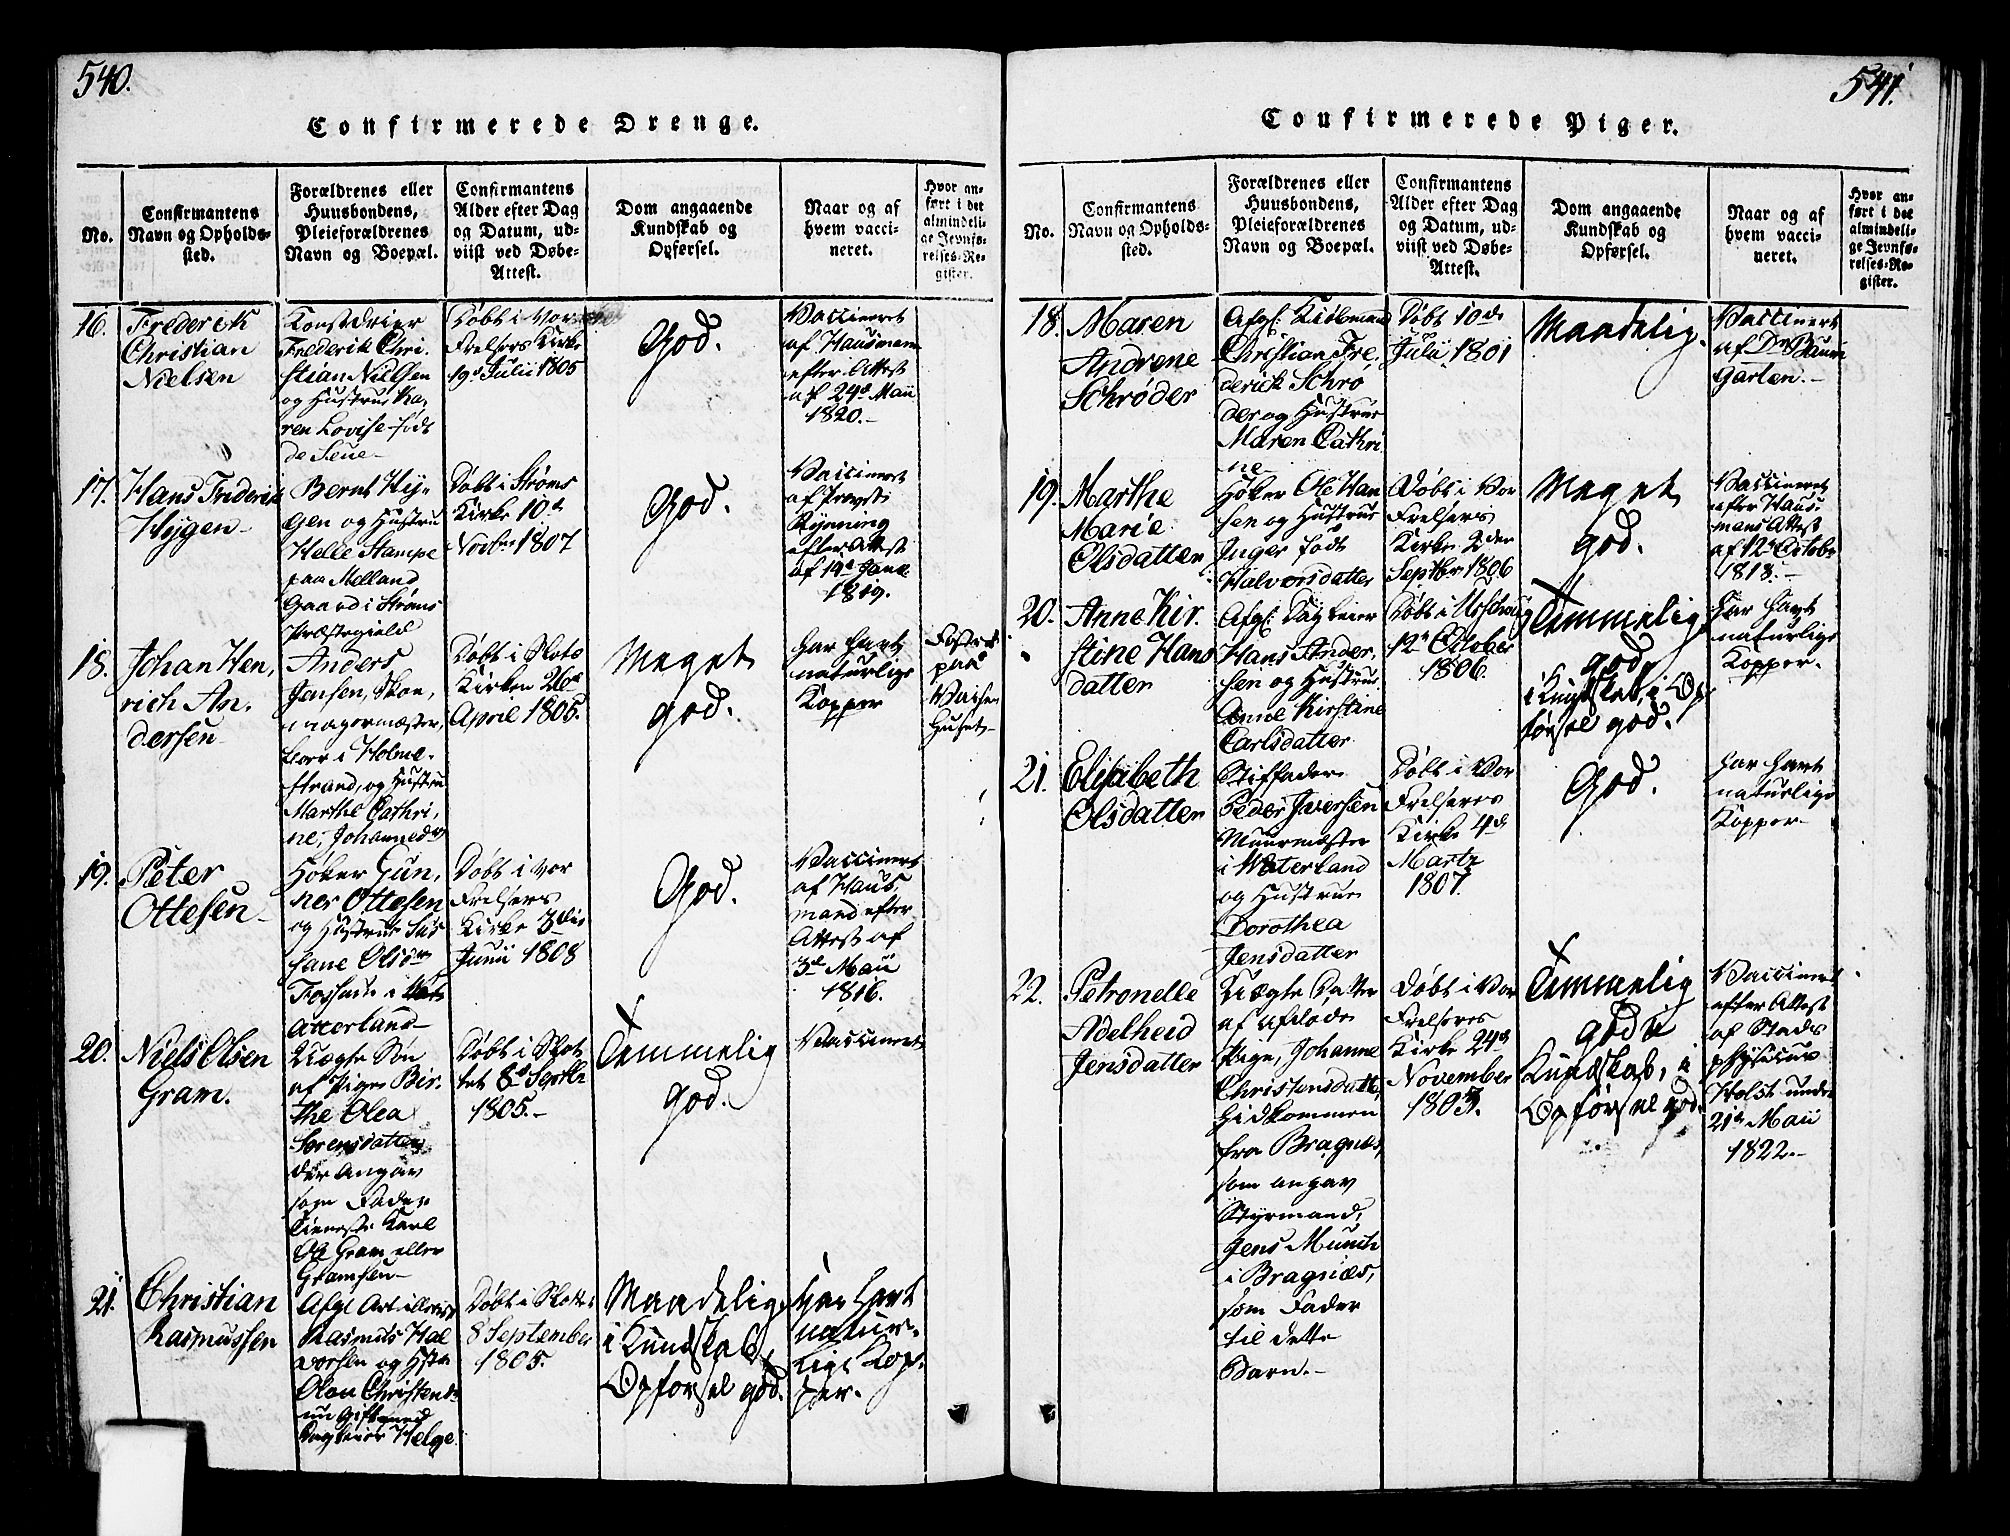 540.
Confirmerede Drenge.
No.
Confirmantens
Navn og Opholds-
sted.
Forældrenes eller
Huusbondens,
Pleieforældrenes
Navn og Boepæl.
Confirmantens
Alder efter Dag
og Datum, ud-
viist ved Døbe-
Attest.
Dom angaaende
Kundskab og
Opførsel.
Naar og af
hvem vacci-
neret.
Hvor an-
ført i det
almindeli-
ge Jevnfø-
relses-Re-
gister.
16.
Frederik
Christian
Nielsen
Frederik Chri-
stian Nielsen
og Hustrue Ka-
ren Lovise født
de Seue
Døbt i Vor
Frelsers Kirke
19d Julii 1805
God.
Vaccineret
af Hausmann
efter Attest
af 24d Maii
1820.-
17.
Hans Frederik
Hygen
Bernt Hy-
gen og Hustru
Helle Stampe
paa Melland
Gaard i Strøms
Præstegield
Døbt i Strøms
Kirke 10d
Novbr 1807
God.
Vaccineret
af Provst
Rynning
efter Attest
af 19d Janu
1819.
18.
Johan Hen,
rich An,
dersen
Anders
Jensen, Skoe,
magermester,
i Holme-
strand, og Hustrue
Marthe Cathri,
ne, Johannedtr
Døbt i Slots
Kirken 26d
April 1805.
Meget
god.
har havt
naturlige
Kopper
Fostret
paa
Vaisen
Huset
19.
Peter
Ottesen
Høker Gun,
ner Ottesen
og Hustrue Sus
sane Olsdr
Døbt i Vor
Frelsers
Kirke 3die
Junii 1808
God.
Vaccineret
af Haus,
mand efter
Attest af
3d Maii
1816.
20.
Niels Olsen
Gram.
Uægte Søn
af Pige Bir-
the Olea
Sørensdatter
der angav
som Fader
Tieneste Karl
Ole Gram eller
Gramsen
Døbt i Slot
tet 8d Septbr
1805.-
Temmelig
god.
Vaccineret
21.
Christian
Rasmussen
Afgl Artillerist
Rasmus Hal
vorsen og Hstr
Olau Christensdr
nu Gift med
Dagleier Helge
Døbt i Slottet
8 September
1805.
Maadelig
i Kundskab,
Opførsel god.
har havt
natur-
lige Kop-
per.
541.
Confirmerede Piger.
No.
Confirmantens
Navn og Opholds-
sted.
Forældrenes eller
Huusbondens,
Pleieforældrenes
Navn og Boepæl.
Confirmantens
Alder efter Dag
og Datum, ud-
viist ved Døbe-
Attest.
Dom angaaende
Kundskab og
Opførsel.
Naar og af
hvem vacci-
neret.
Hvor an-
ført i det
almindeli-
ge Jevnfø-
relses-Re-
gister.
18.
Maren
Andrene
Schrøder
Afgl. Kiøbmand
Christian Fre,
derick Schrø
der og Hustrue
Maren Cathri
ne
Døbt 10de
Julii 1801
Maadelig.
Vaccineret
af Dr Baum
Garten.-
19.
Marthe
Marie
Olsdatter
Høker Ole Han
sen og Hustrue
Inger født
Halvorsdatter
Døbt i Vor
Frelsers
Kirke 2der
Septbr 1806
Meget
god.
Vaccineret
efter Haus
mans Attest
af 12d Octobr
1818.-
20.
Anne Kir.
stine Hans
datter
Afgl. Dagleier
Hans Ander.
sen og Hustrue
Anne Kirstine
Carlsdatter
12d October
1806.
Temmelig
god
i Kundskab, i Op,
førsel god.
har havt
naturlige
Kopper.
21.
Elisabeth
Olsdatter
Stiffader
Peder Iversen
Muurmester
i Waterland
og Hustrue
Dorothea
Jensdatter
Døbt i Vor
Frelseres
Kirke 4d
Martz
1807.
God.
har havt
naturlige
Kopper
22.
Petronelle
Adelheid
Jensdatter
Uægte Datter
af afdøde
Pige, Johanne
Christensdatter,
hidkommen
fra Bragnæs,
som angav
Styrmand,
Jens Munch
i Bragnæs,
som Fader
til dette
Barn.-
Døbt i Vor
Frelseres
Kirke 24d
November
1805.
Temmelig
god
Kundskab, i
Opførsel god.
Vaccineret
efter Attest
af Stads
physicus
Holst under
21d Maii
1822.-